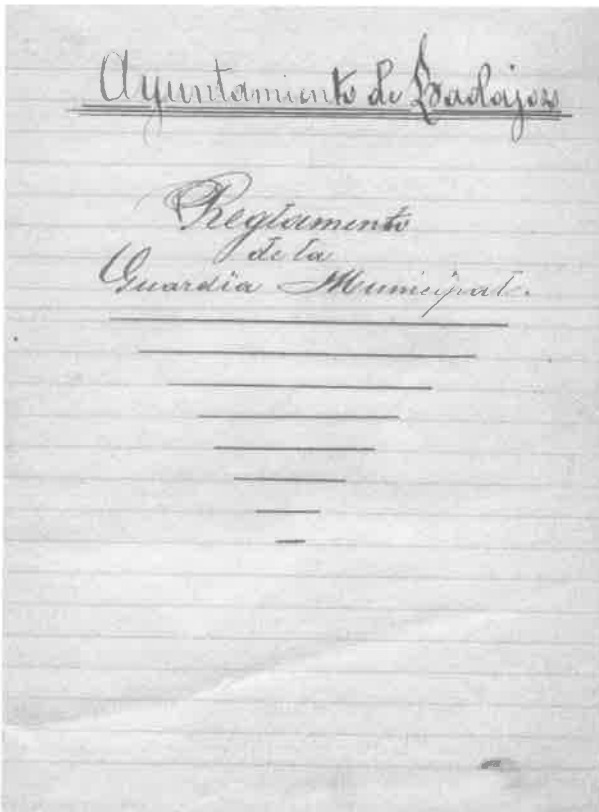 Ayuntamiento de Badajoz
Reglamento
de la
Guardia Municipal.